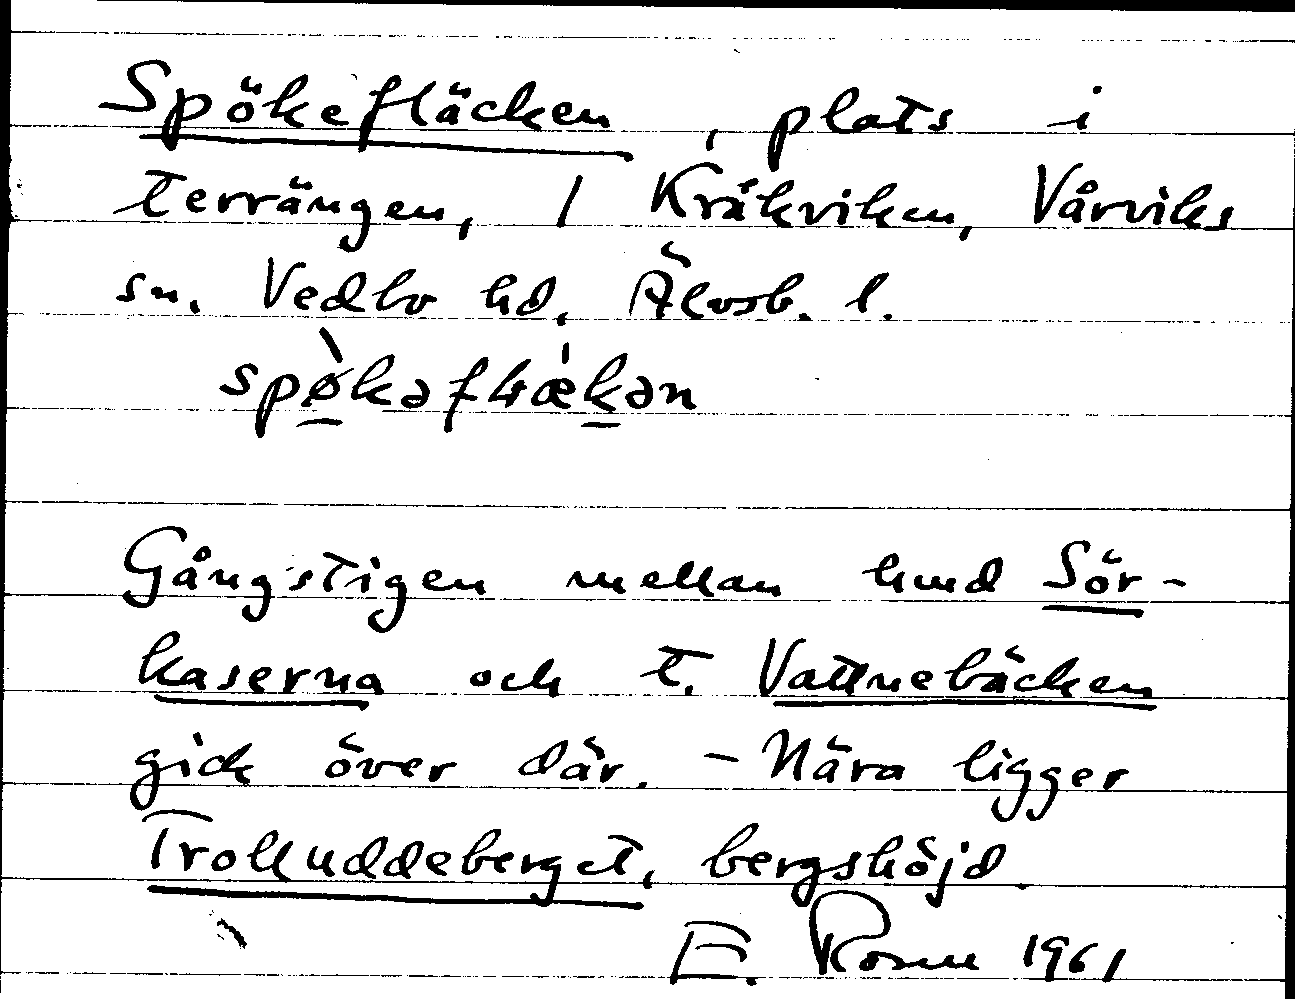 Spökefläcken, plats i
terrängen, 1 Kråkviken, Vårviks
sn. Vedbo hd, Älvsb. l.
spø̀kəflæ̍kən
Gångstigen mellan hmd Sör-
kaserna och t. Vattnebäcken
gick över där. - Nära ligger
Trolluddeberget, bergshöjd.
E. Rosen 1961